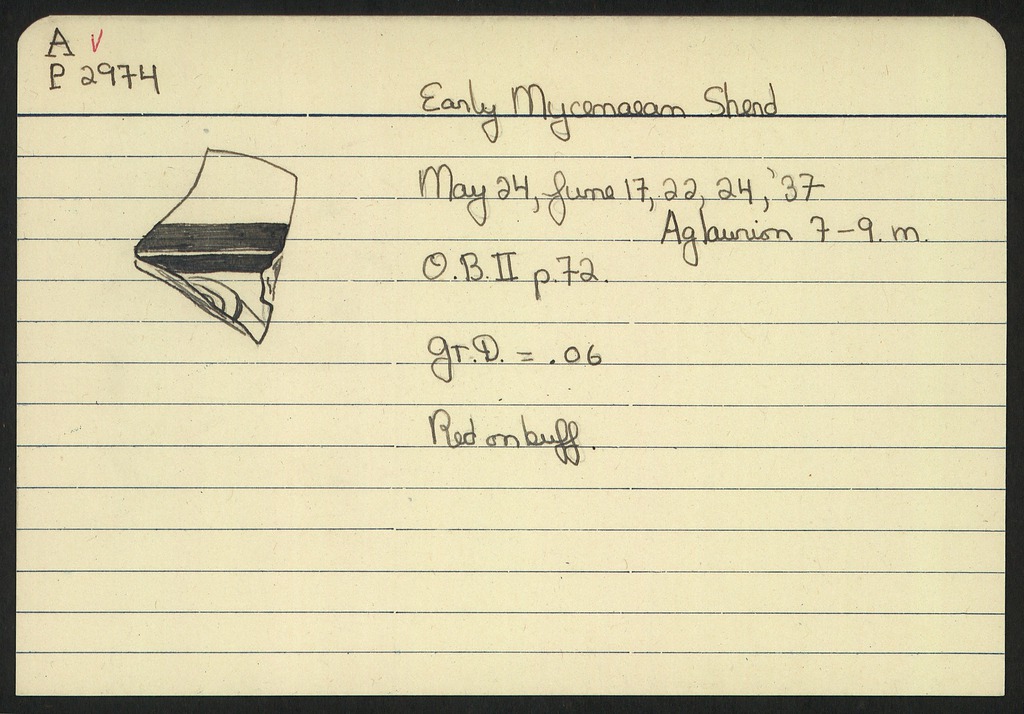 A ✓
P 2974
Early Mycenaean Sherd
May 24, June 17, 22, 24, '37
Aglaurion 7-9. m.
O.B. II p.72.
gr.D. = .06
Red on buff.